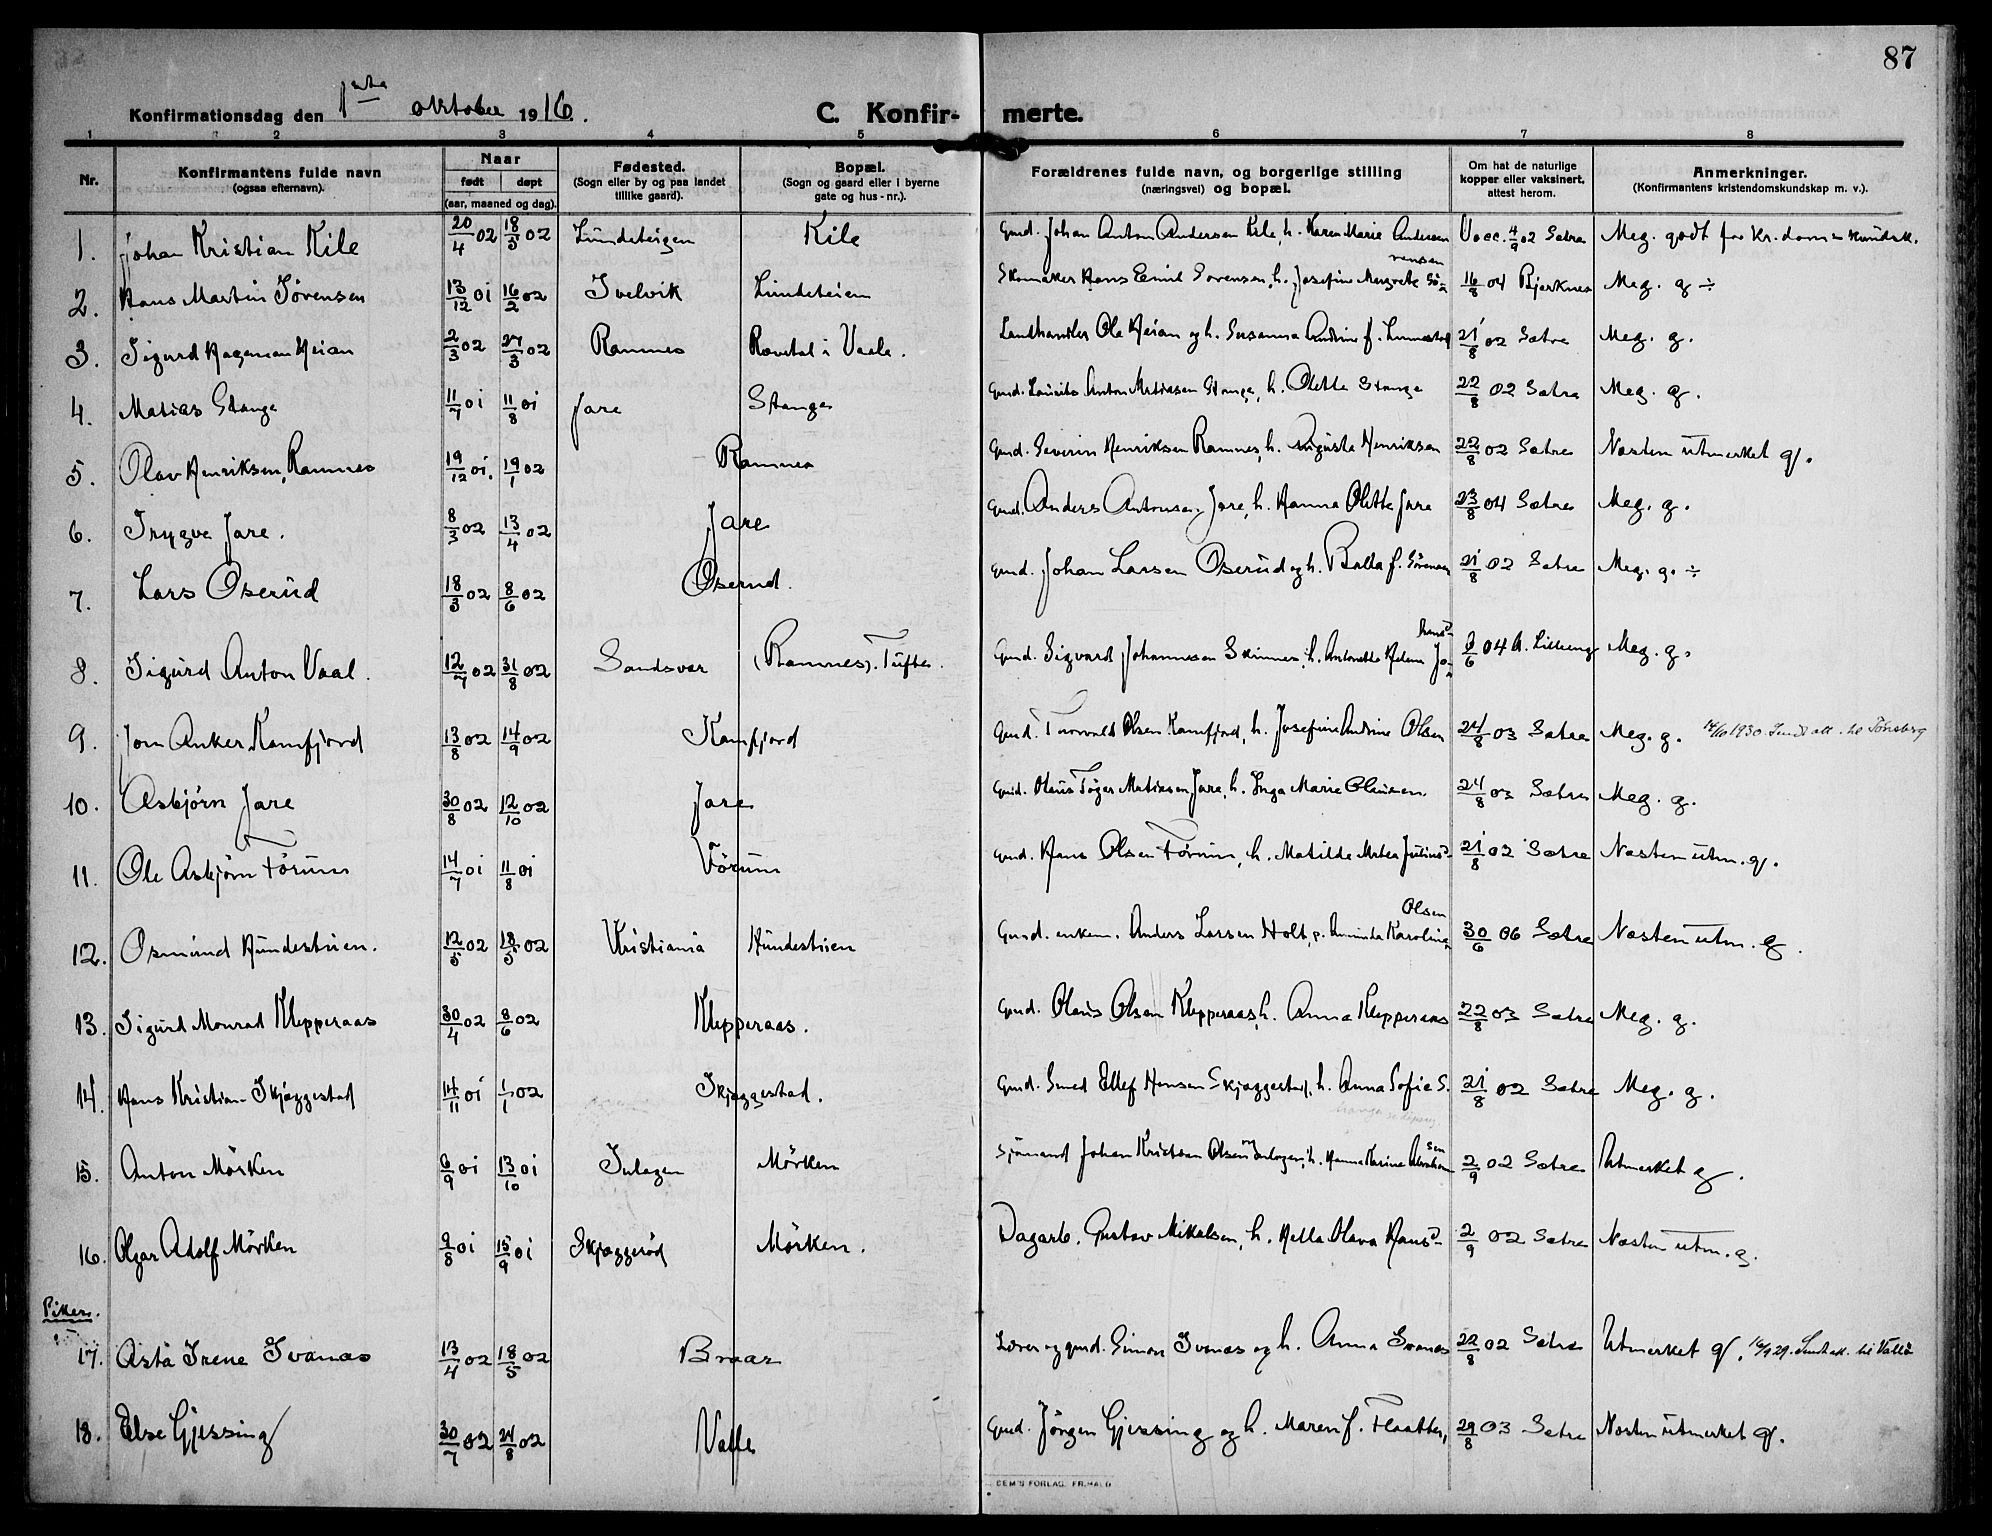 87
Konfirmationsdag den 1ste oktober 1916. C. Konfir- merte.
1 2 3 4 5 6 7 8
Nr. Konfirmantens fulde navn (ogsaa efternavn). Naar født døpt (aar, maaned og dag). Fødested. (Sogn eller by og paa landet tillike gaard). Bopæl. (Sogn og gaard eller i byerne gate og hus-nr.). Forældrenes fulde navn, og borgerlige stilling (næringsvei) og bopæl. Om hat de naturlige kopper eller vaksinert, attest herom. Anmerkninger. (Konfirmantens kristendomskundskap m. v.).
1. Johan Kristian Kile 20/4 02 18/5 02 Lundeteigen Kile Gmd. Johan Anton Andersen Kile, h. Karen Marie Andersen Vacc. 4/9 02 Sætre Meg. godt for kr.doms kundsk.
2. Hans Martin Sørensen 13/12 01 16/2 02 Svelvik Lindeteien Skomaker Hans Emil Sorensen, h. Josefine Margrete Sörensen 16/8 04 Bjerknes Meg. g ÷
3. Sigurd Hageman Heian 2/3 02 27/3 02 Ramnes Revetal i Vaale. Landhandler Ole Heian og h. Susanna Andrine f. Linnestad 21/8 02 Sætre Meg. g.
4. Matias Stange 11/7 01 11/8 01 Jare Stange Gmd. Laurits Anton Matiasen Stange, h. Olette Stange 22/8 02 Sætre Meg. g.
5. Olav Henriksen Ramnes 19/12 01. 19/1 02 Ramnes Gmd. Severin Henriksen Ramnes, h. Auguste Henriksen 22/8 02 Sætre Næsten utmerket g.
6. Trygve Jare. 8/3 02 13/4 02 Jare Gmd. Anders Antonsen Jare, h. Hanna Olette Jare 23/8 04 Sætre Meg. g.
7. Lars Oserud 18/3 02 8/6 02 Oserud. Gmd. Johan Larsen Oserud og h. Bolla f. Sörensen 21/8 02 Sætre Meg. g. ÷
8. Sigurd Anton Vaal. 12/7 02 31/8 02 Sandsvær (Ramnes). Tufte. Gmd. Sigvard Johannesen Skinnes, h. Antonette Helene Johansd. /6 04 A. Lilleeng Meg. g.
9. Jon Anker Kamfjord 13/8 02 14/9 02 Kamfjord Gmd. Torvald Olsen Kamfjord, h. Josefine Andrine Olsen 24/8 03 Sætre Meg. g. 14/10 1930. Sendt att. til Tönsberg
10. Asbjörn Jare 30/8 02 12/10 02 Jare Gmd. Olaus Töger Matiesen Jare, h. Inga Marie Olausen. 24/8 03 Sætre Meg. g.
11. Ole Asbjörn Förum 14/7 01 11/8 01 Förum Gmd. Hans Olsen Förum, h. Matilde Matea Juliusd. 21/8 02 Sætre Næsten utm. g.
12. Osmund Hundestuen. 12/5 02 18/5 02 Kristiania Hundestuen Gmd. enkem. Anders Larsen Holt, p. Aminda Karoline Olsen 30/6 06 Sætre Næsten utm. g.
13. Sigurd Monrad Klepperaas 30/4 02 8/6 02 Klepperaas. Gmd. Olaus Olsen Klepperaas, h. Anna Klepperaas 22/8 03 Sætre Meg. g.
14. Hans Kristian Skjæggestad 14/11 01 1/1 02 Skjæggestad. Gmd. Smed Ellef Hansen Skjæggestad, h. Anna Sofie S. 21/8 02 Sætre Meg. g.
15. Anton Mörken 6/9 01 13/10 01 Inlagen Mörken Sjömand Johan Kristian Olsen Inlagen, h. Hanna Karine Abrahamsen 2/9 02 Sætre Utmerket g.
16. Olgar Adolf Mörken 9/8 01 15/9 01 Skjæggeröd Mörken. Dagarb. Gustav Mikalsen, h. Hella Olava Hansd. 2/9 02 Sætre Næsten utm. g.
Piker.
17. Asta Irene Svanæs 13/4 02 18/5 02 Braar Lærer og gmd. Simon Svanæs og h. Anna Svanæs 22/8 02 Sætre Utmerket g. 16/9 29. Sendt att. til Vallö
18. Else Gjessing 30/7 02 24/8 02 Valle Gmd. Jörgen Gjessing og h. Maren f. Flaatten, 29/8 03 Sætre Næsten utmerket g.
SEM'S FORLAG. FR.HALD